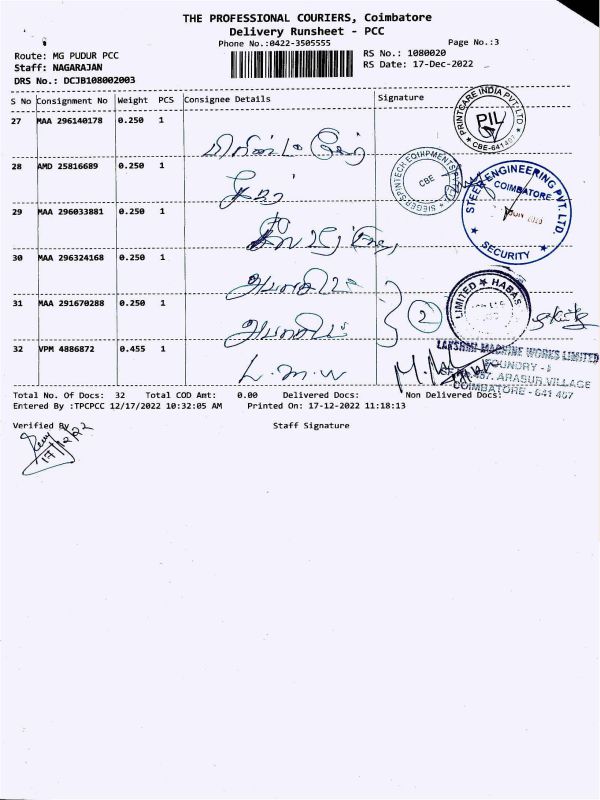 THE PROFESSIONAL COURIERS, Coimbatore
Delivery Runsheet - PCC
Phone No.:0422-3505555
Page No.:3
Route: MG PUDUR PCC
RS No.: 1080020
Staff: NAGARAJAN
RS Date: 17-Dec-2022
DRS No.: DCJB108002003
S No Consignment No Weight PCS Consignee Details Signature
27 MAA 296140178 0.250 1
PRINTCARE INDIA PVT LTD
PIL
28 AMD 25816689 0.250 1
SIEGER SPINTECH EQUIPMENTS
CBE
STEER ENGINEERING PVT. LTD.
COIMBATORE
SECURITY
29 MAA 296033881 0.250 1
30 MAA 296324168 0.250 1
LIMITED ★ HABAS
31 MAA 291670288 0.250 1
2
32 VPM 4886872 0.455 1
L.M.W
LAKSHMI MACHINE WORKS LIMITED
FOUNDRY - I
ARASUR VILLAGE
COIMBATORE - 641 407
Total No. Of Docs: 32 Total COD Amt: 0.00 Delivered Docs: Non Delivered Docs:
Entered By :TPCPCC 12/17/2022 10:32:05 AM Printed On: 17-12-2022 11:18:13
Verified By Staff Signature
17/12/22